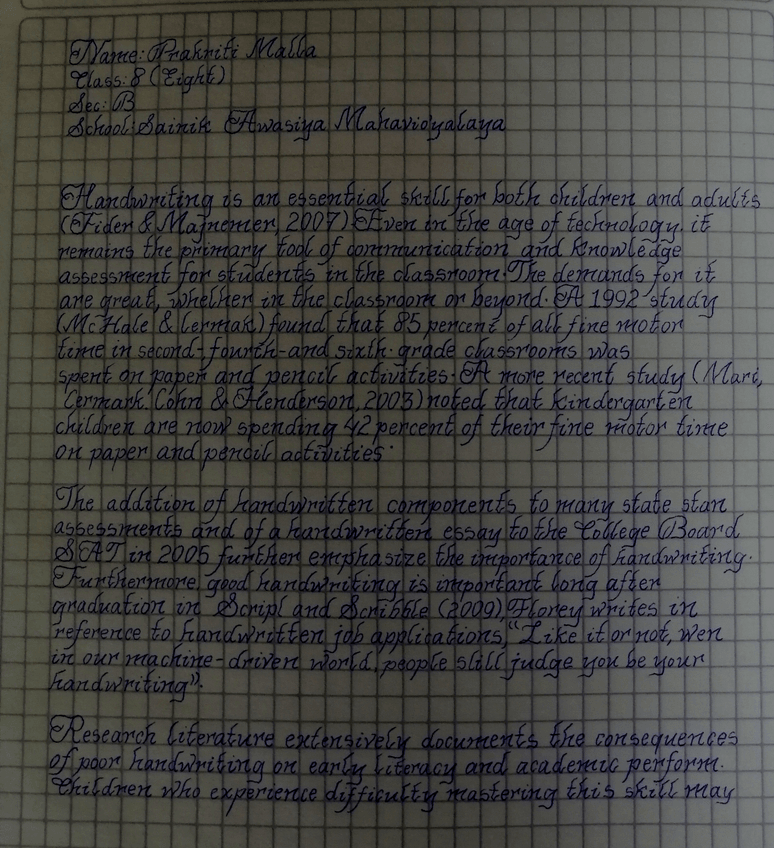 Name: Prakriti Malla
Class: 8 (Eight)
Sec: B
School: Sainik Awasiya Mahavidyalaya
Handwriting is an essential skill for both children and adults
(Fider & Majnemer, 2007). Even in the age of technology, it
remains the primary tool of communication and knowledge
assessment for students in the classroom. The demands for it
are great, whether in the classroom or beyond. A 1992 study
(McHale & Cermak) found that 85 percent of all fine motor
time in second-, fourth- and sixth-grade classrooms was
spent on paper and pencil activities. A more recent study (Marr,
Cermark, Cohn & Henderson, 2003) noted that kindergarten
children are now spending 42 percent of their fine motor time
on paper and pencil activities.
The addition of handwritten components to many state stan
assessments and of a handwritten essay to the College Board
SAT in 2005 further emphasize the importance of handwriting.
Furthermore, good handwriting is important long after
graduation in Script and Scribble (2009), Florey writes in
reference to handwritten job applications, "Like it or not, wen
in our machine-driven world, people still judge you be your
handwriting".
Research literature extensively documents the consequences
of poor handwriting on early literacy and academic perform.
Children who experience difficulty mastering this skill may